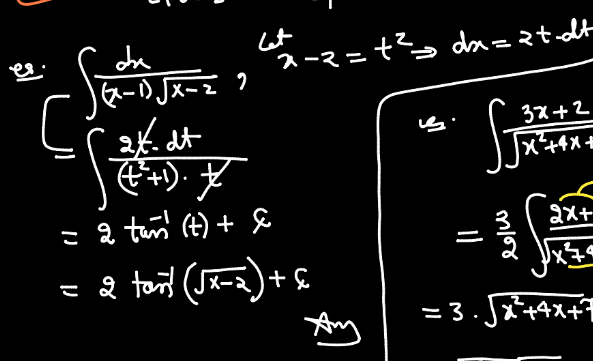 ex. ∫ dx / (x-1)√x-2 , Let x-2 = t² ⇒ dx = 2t·dt
= ∫ 2t·dt / (t²+1)·t
= 2 tan⁻¹ (t) + c
= 2 tan⁻¹ (√x-2) + c
Ans
ex. ∫ 3x+2 / √x²+4x+
= 3/2 ∫ 2x+ / √x²+4
= 3·√x²+4x+7